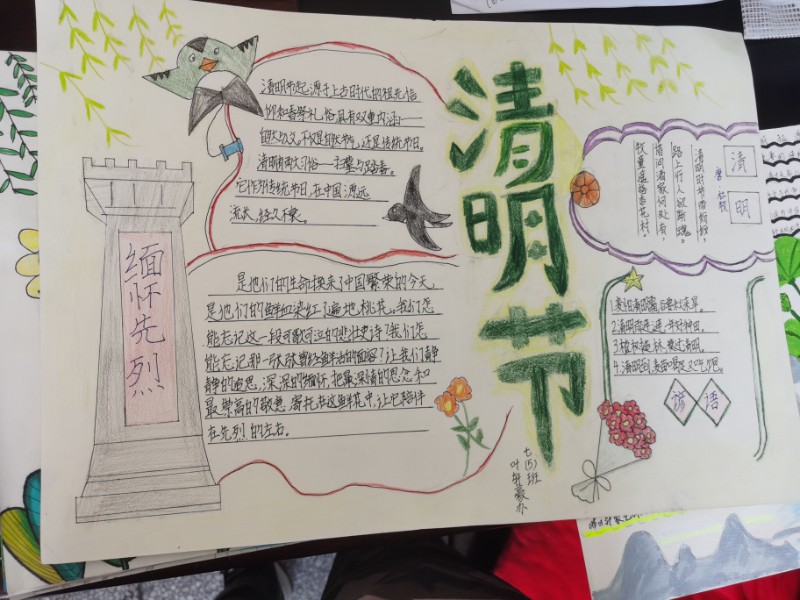 清明节起源于上古时代的祖先信
仰和春祭礼俗,具有双重内涵——
自然与人文,不仅是自然节气,还是传统节日。
清明有两大习俗——扫墓与踏春。
它作为传统节日,在中国源远
流长,经久不衰。
缅怀先烈
是他们的生命换来了中国繁荣的今天,
是他们的鲜血染红了遍地桃花。我们怎
能忘记这一段可歌可泣的悲壮史诗?我们怎
能忘记那一张张曾经鲜活的面容?让我们静
静的追思,深深的缅怀,把最深情的思念和
最崇高的敬意,寄托在这鲜花中,让它陪伴
在先烈的左右。
清明节
七(5)班
清明
唐 杜牧
清明时节雨纷纷,
路上行人欲断魂。
借问酒家何处有,
牧童遥指杏花村。
3.植树造林,莫过清明。
谚语